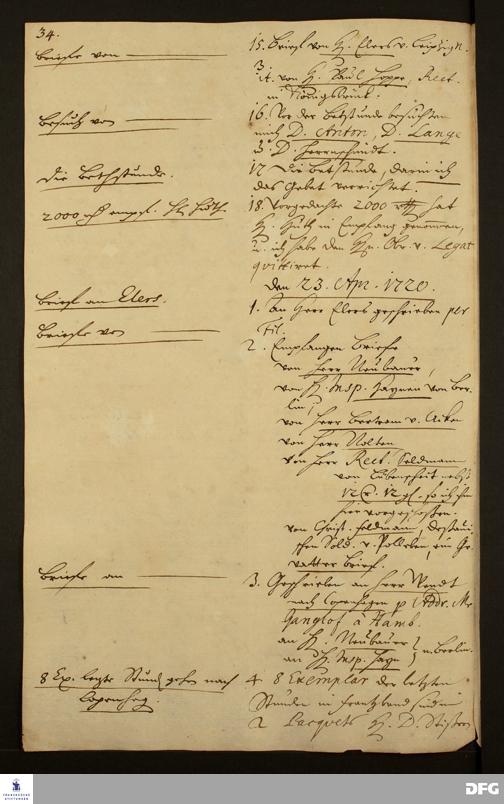 34.
Briefe von
Besuch von
die Bethstunde.
2000 rh empf. H. Huth
Briefe an Elers.
Briefe von
Briefe an
8 Ex. letzte Stund gehen nach
Copenhag.
15. Brief von H. Elers v. Leipzig.
it. von H. Paul Hoppe, Rect.
in Königsbrück.
16. Vor der Betstunde besuchten
mich D. Anton, D. Lange
D. Herrnschmidt.
17 Die Betstunde, darin ich
das Gebet verrichtet.
18. Vorgedachte 2000 rth hat
H. Huth in Empfang genommen,
u. ich habe den Hn. Obr. v. Legat
quittiret.
den 23. Apr. 1720.
1. an Herr Elers geschrieben per
Fil.
2. Empfangen Briefe
von Herr Neubauer,
von H. Insp. Haynen von Ber-
lin,
von Herr Bertram v.
von Herr Nolten
von Herr Rect. Soldmann
von nebst
12 so ich ihm
hier vorgeschossen.
von Christ. Feldmann,
schen Sold. v. ein Ge-
vatter Brief.
3. Geschrieben an Herr Wendt
nach Copenhagen p Addr. Mr
Ganglof à Hamb.
an H. Neubauer
an H. Insp. Hayn
in Berlin.
4 8 Exemplar der letzten
Stunden in frantzband
2 Pacquets H. D.
DFG